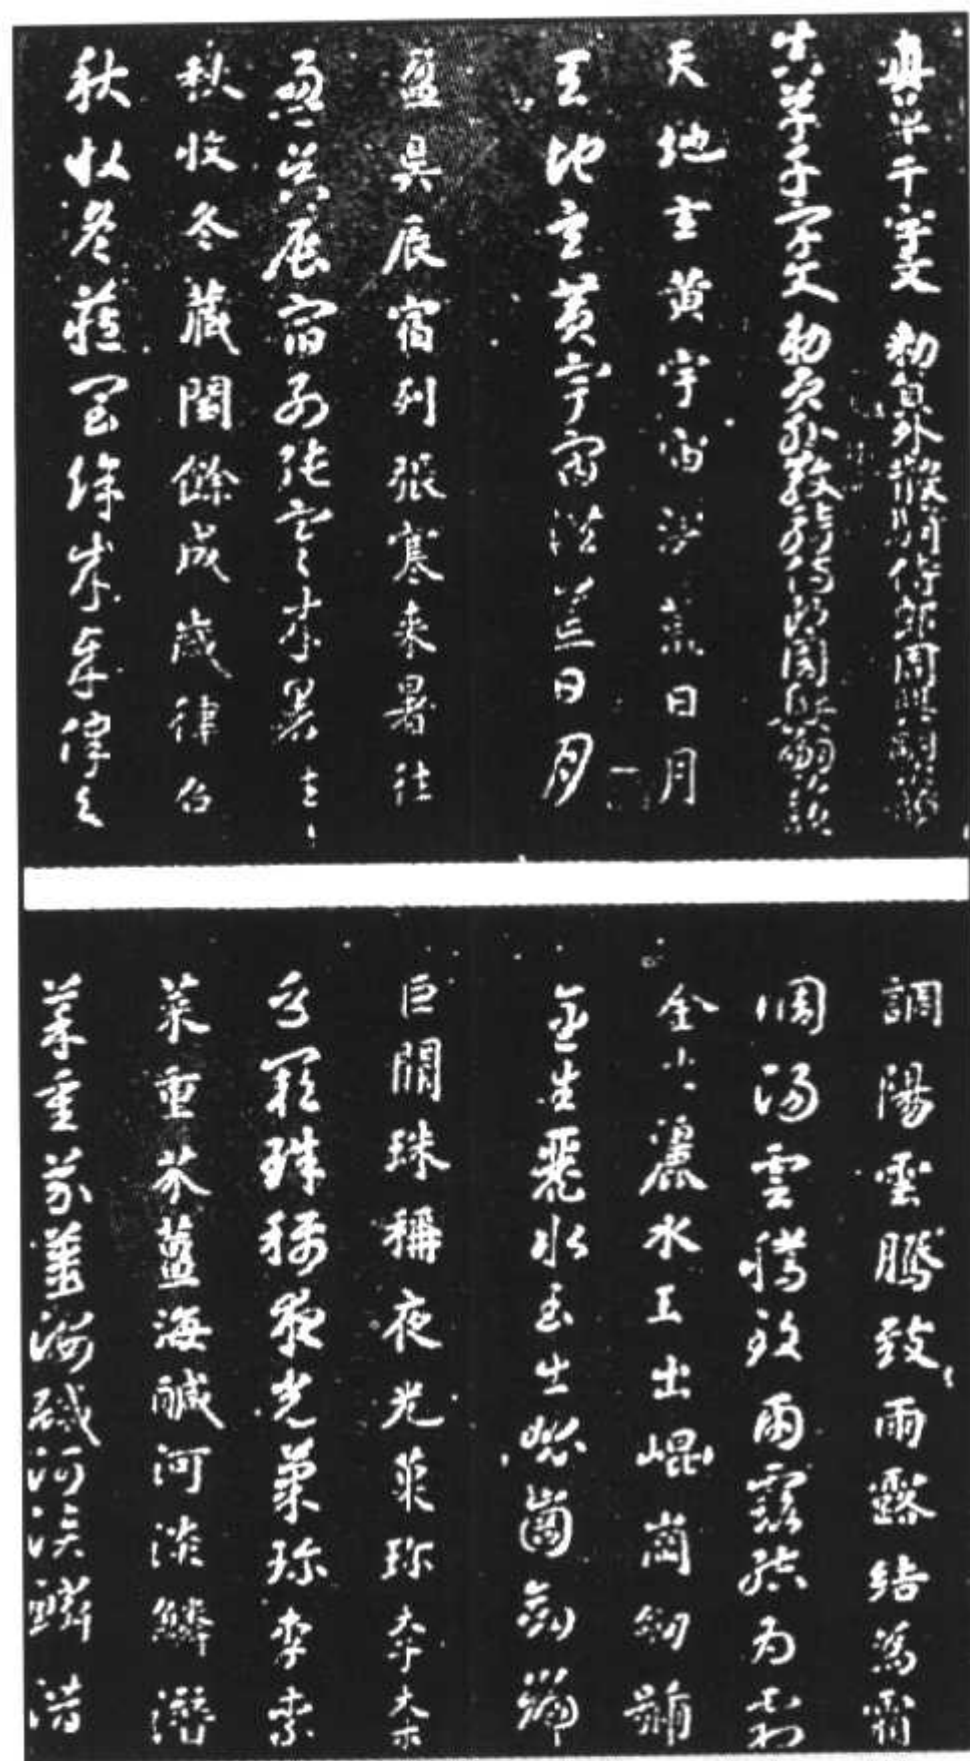 真草千字文 勅員外散騎侍郎周興嗣次韻
真草千字文 勅員外散騎侍郎周興嗣次韻
天地玄黃宇宙洪荒日月
天地玄黃宇宙洪荒日月
盈昃辰宿列張寒来暑往
盈昃辰宿列張寒来暑往
秋收冬藏閏餘成歲律召
秋收冬藏閏餘成歲律召
調陽雲騰致雨露結為霜
調陽雲騰致雨露結為霜
金生麗水玉出崐崗劒號
金生麗水玉出崐崗劒號
巨闕珠稱夜光菓珎李柰
巨闕珠稱夜光菓珎李柰
菜重芥薑海醎河淡鱗潛
菜重芥薑海醎河淡鱗潛